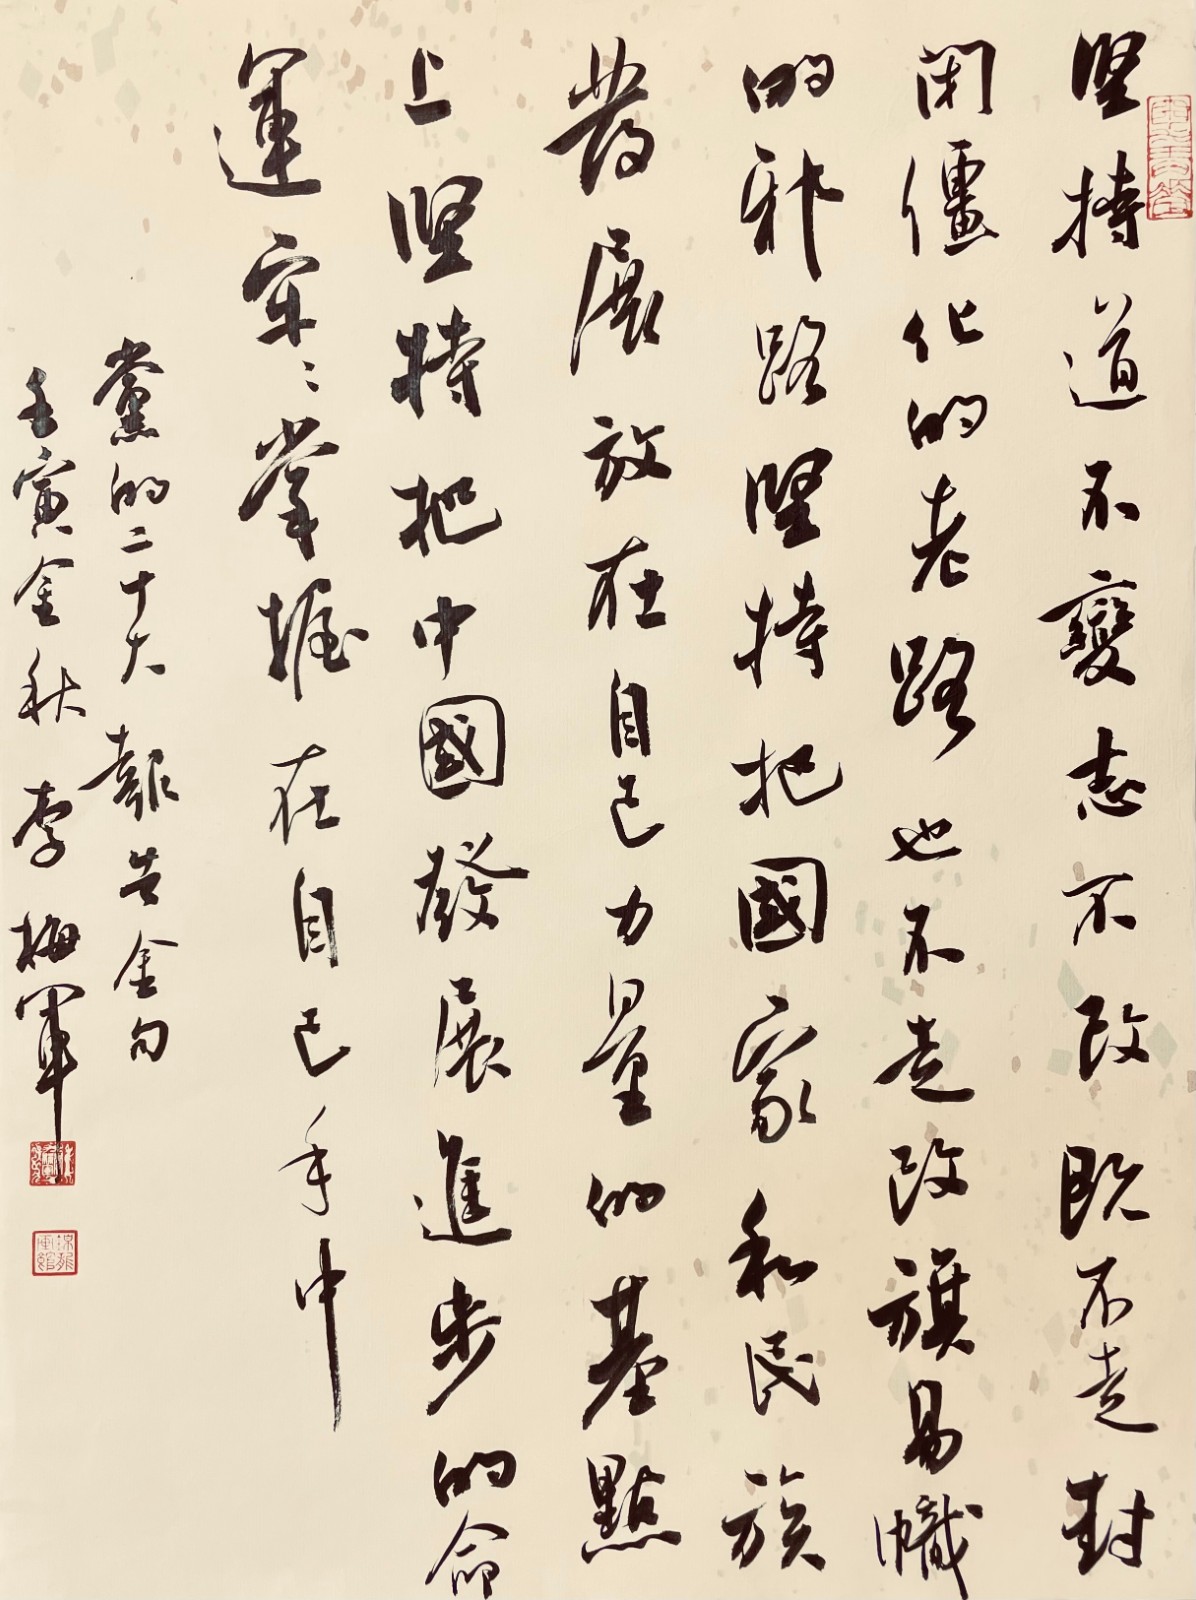 堅持道不變志不改既不走封
閉僵化的老路也不走改旗易幟
的邪路堅持把國家和民族
發展放在自己力量的基點
上堅持把中國發展進步的命
運牢牢掌握在自己手中
黨的二十大報告金句
壬寅金秋李梅軍